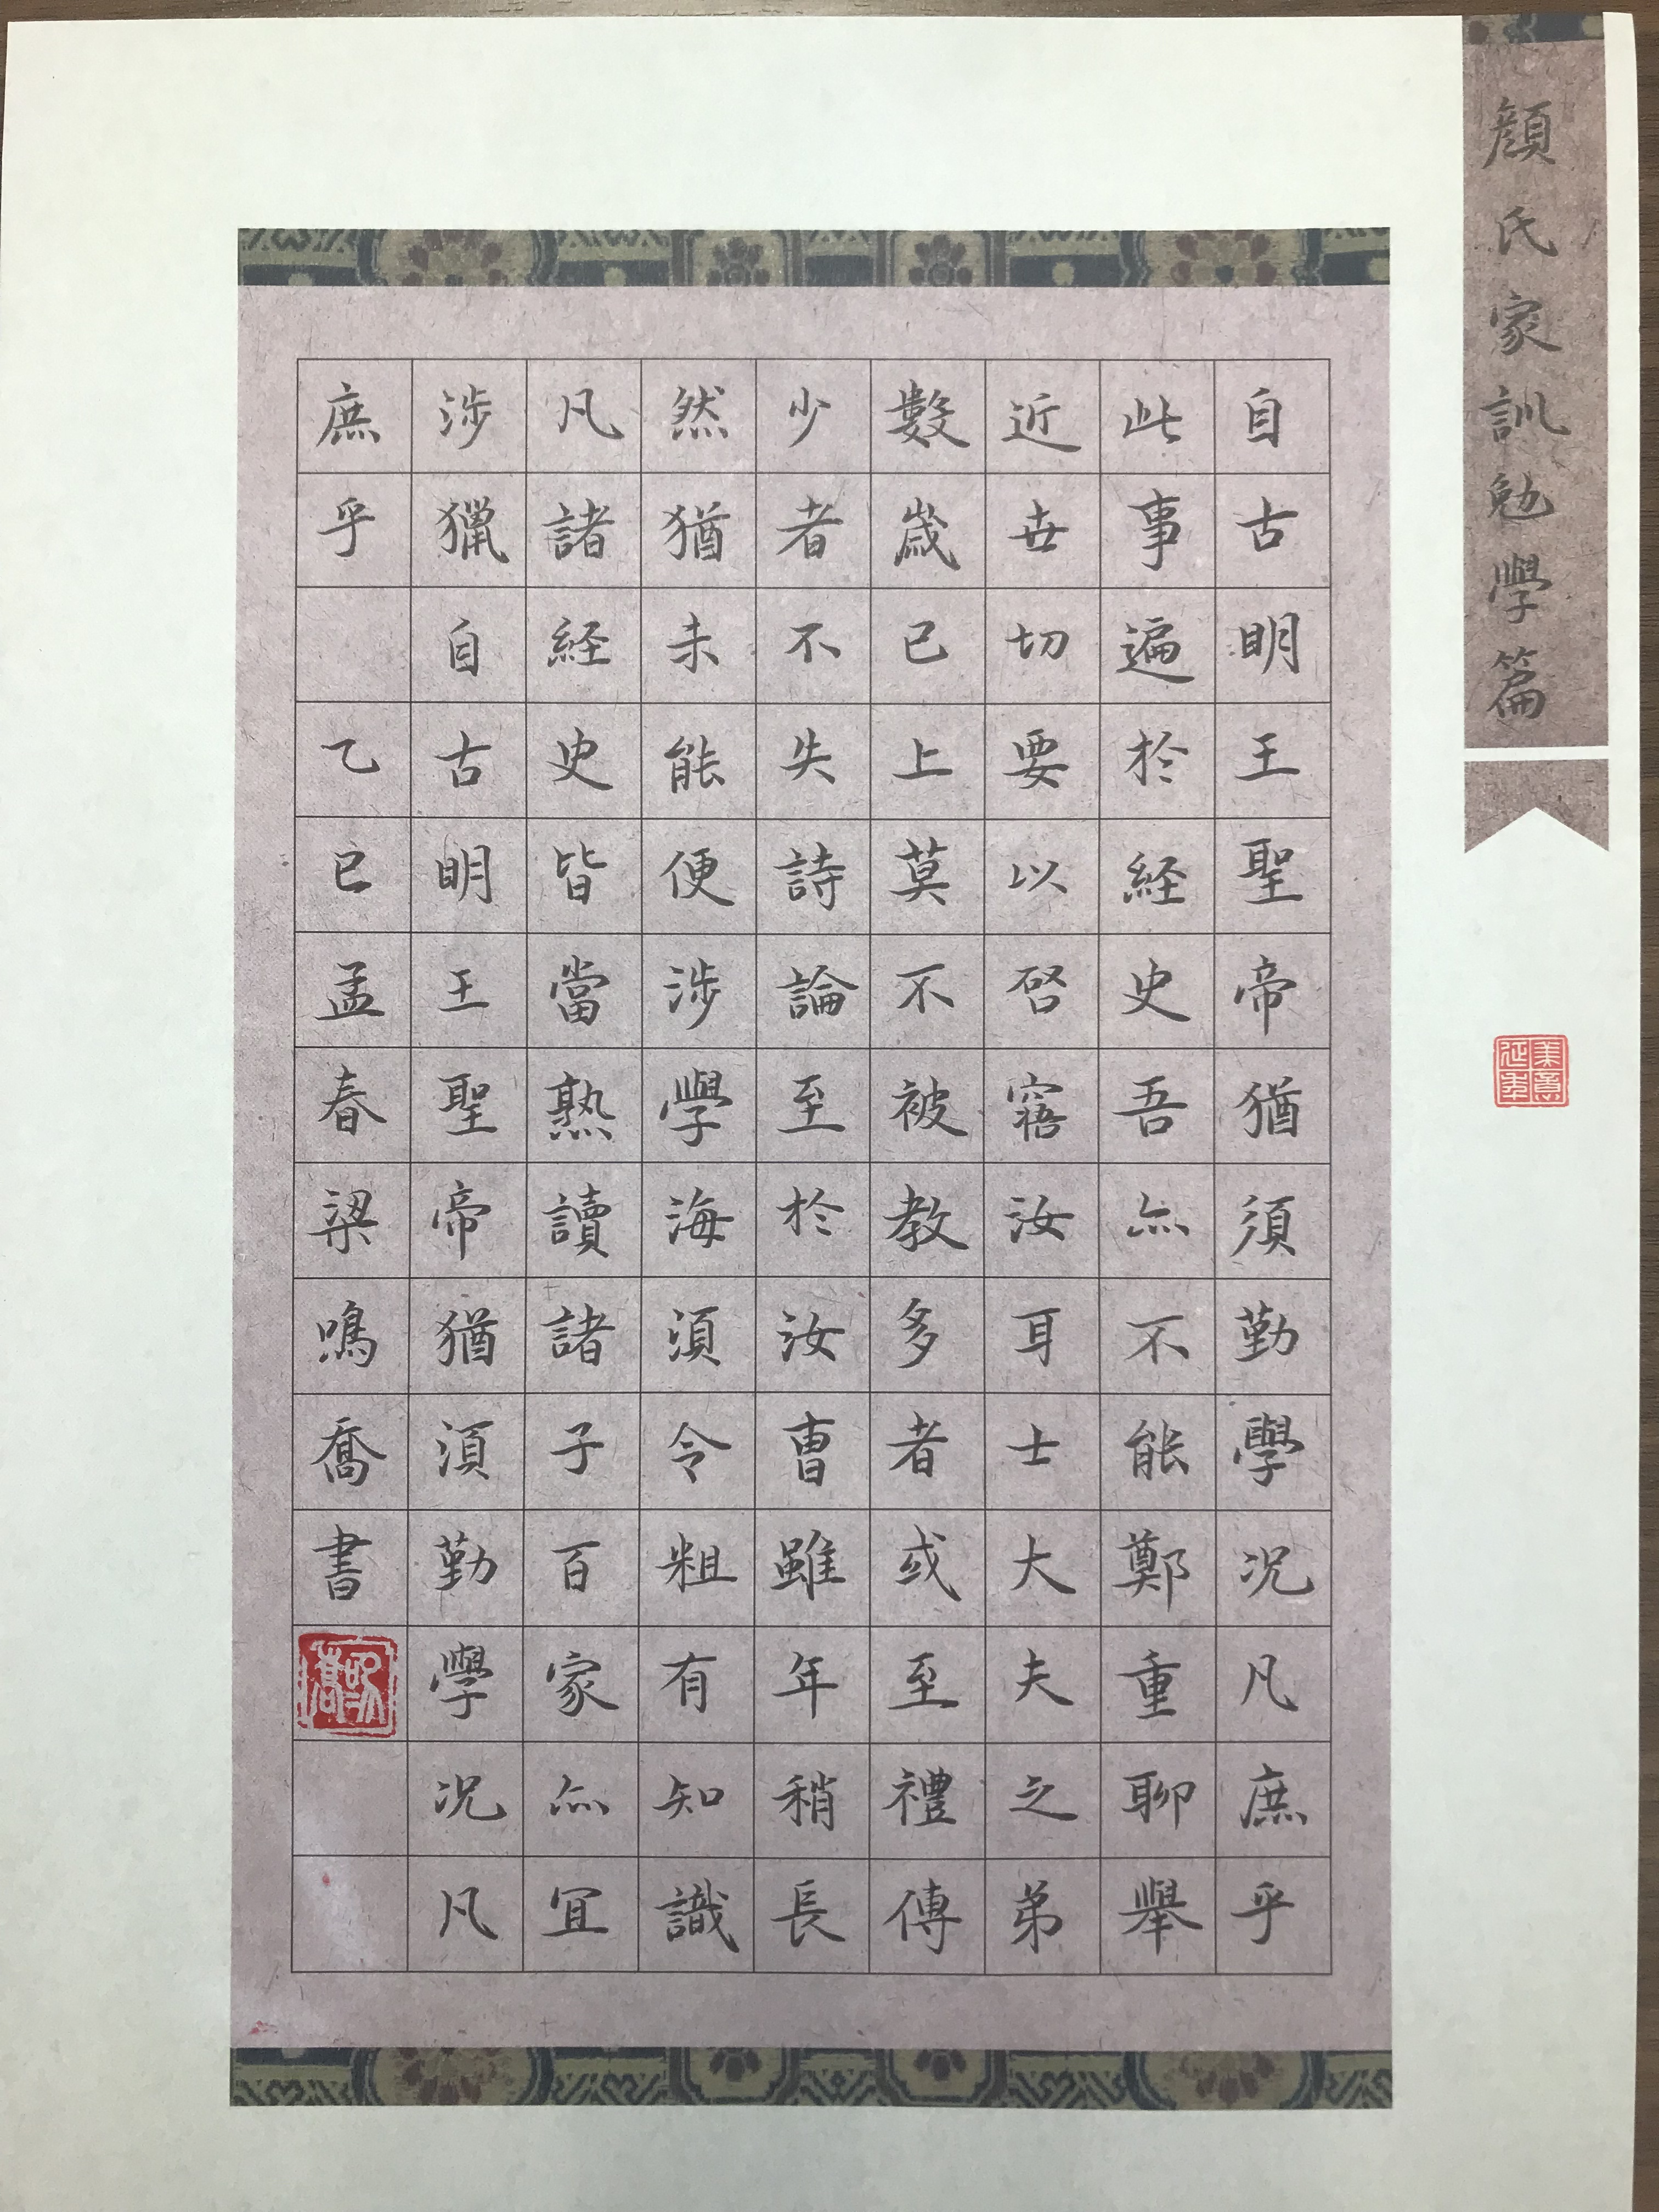 顏氏家訓勉學篇
自古明王聖帝猶須勤學況凡庶乎
此事遍於経史吾亦不能鄭重聊舉
近世切要以啓寤汝耳士大夫之弟
數歲已上莫不被教多者或至禮傳
少者不失詩論至於汝曹雖年稍長
然猶未能便涉學海須令粗有知識
凡諸経史皆當熟讀諸子百家亦宜
涉獵自古明王聖帝猶須勤學況凡
庶乎 乙巳孟春梁鳴喬書
美意延年